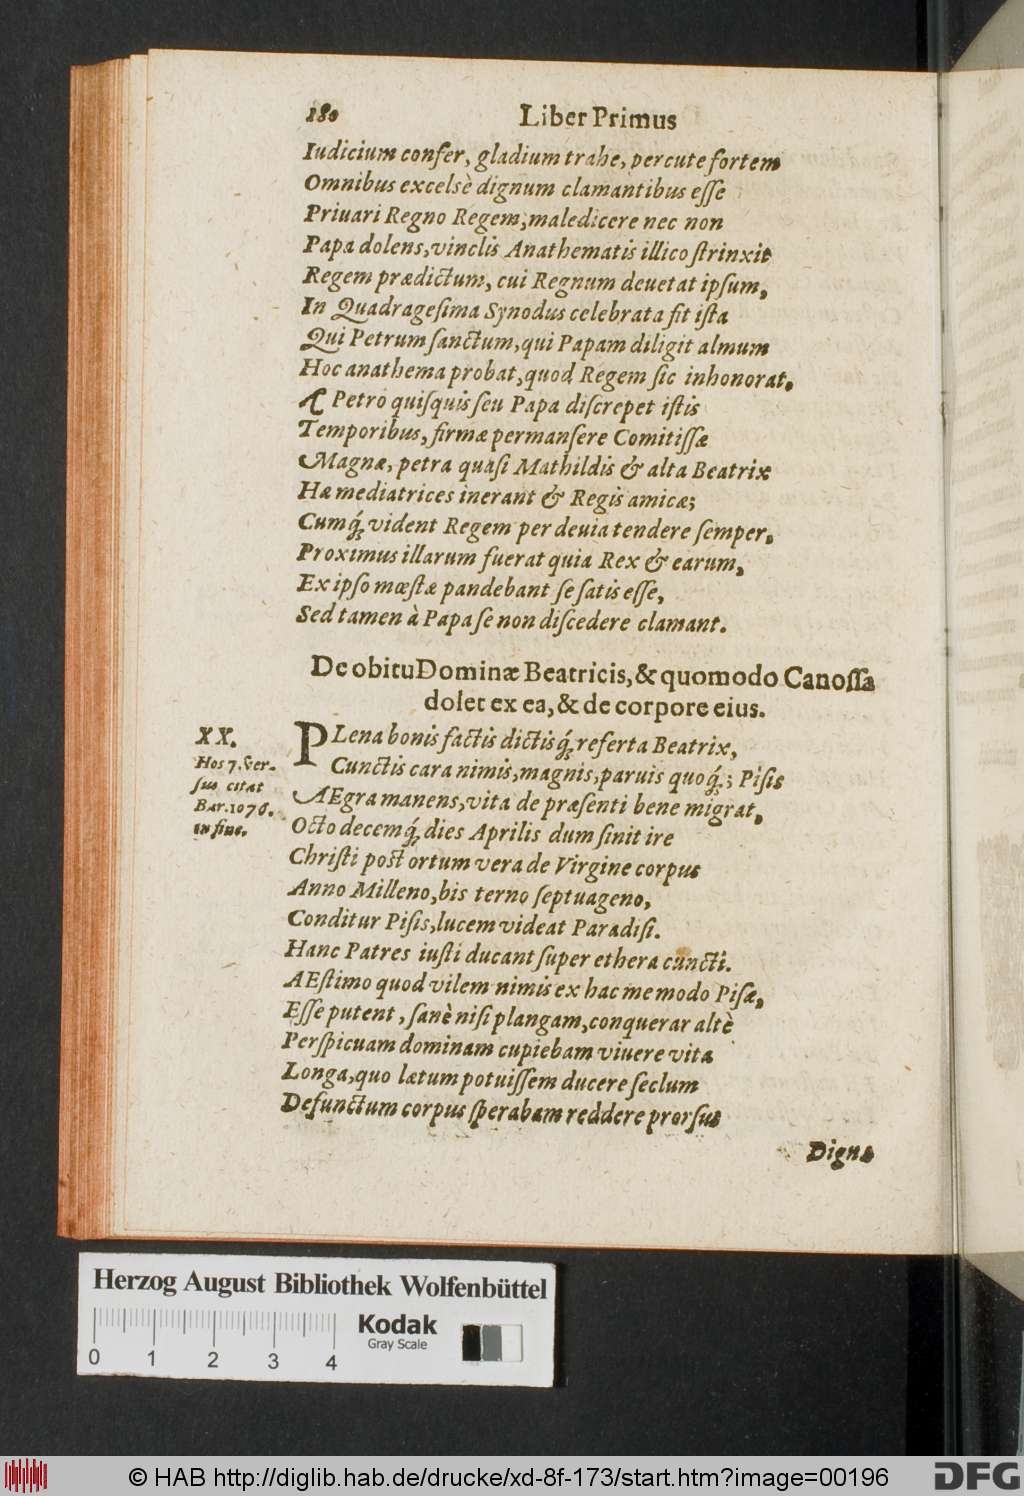 180 Liber Primus
Iudicium confer, gladium trahe, percute fortem
Omnibus excelsè dignum clamantibus eſſe
Priuari Regno Regem, maledicere nec non
Papa dolens, vinclis Anathematis illico ſtrinxit
Regem prædictum, cui Regnum deuetat ipſum,
In Quadrageſima Synodus celebrata fit iſta
Qui Petrum ſanctum, qui Papam diligit almum
Hoc anathema probat, quod Regem ſic inhonorat.
A Petro quiſquis ſeu Papa diſcrepet iſtis
Temporibus, firmæ permanſere Comitiſſæ
Magnæ, petra quaſi Mathildis & alta Beatrix
Hæ mediatrices inerant & Regis amicæ;
Cumq́; vident Regem per deuia tendere ſemper,
Proximus illarum fuerat quia Rex & earum,
Ex ipſo mœſtæ pandebant ſe ſatis eſſe,
Sed tamen à Papa ſe non diſcedere clamant.
De obitu Dominæ Beatricis, & quomodo Canoſſa
dolet ex ea, & de corpore eius.
XX.
Hos 7. ver-
ſus citat
Bar. 1076.
in fine.
PLena bonis factis dictisq́; referta Beatrix,
Cunctis cara nimis, magnis, paruis quoq́;; Piſis
AEgra manens, vita de præſenti bene migrat,
Octo decemq́; dies Aprilis dum ſinit ire
Chriſti poſt ortum vera de Virgine corpus
Anno Milleno, bis terno ſeptuageno,
Conditur Piſis, lucem videat Paradiſi.
Hanc Patres iuſti ducant ſuper ethera cuncti.
AEſtimo quod vilem nimis ex hac me modo Piſæ,
Eſſe putent, ſanè niſi plangam, conquerar altè
Perſpicuam dominam cupiebam viuere vita
Longa, quo lætum potuiſſem ducere ſeclum
Defunctum corpus ſperabam reddere prorſus
Digna
Herzog August Bibliothek Wolfenbüttel
0 1 2 3 4
Kodak
Gray Scale
© HAB http://diglib.hab.de/drucke/xd-8f-173/start.htm?image=00196
DFG